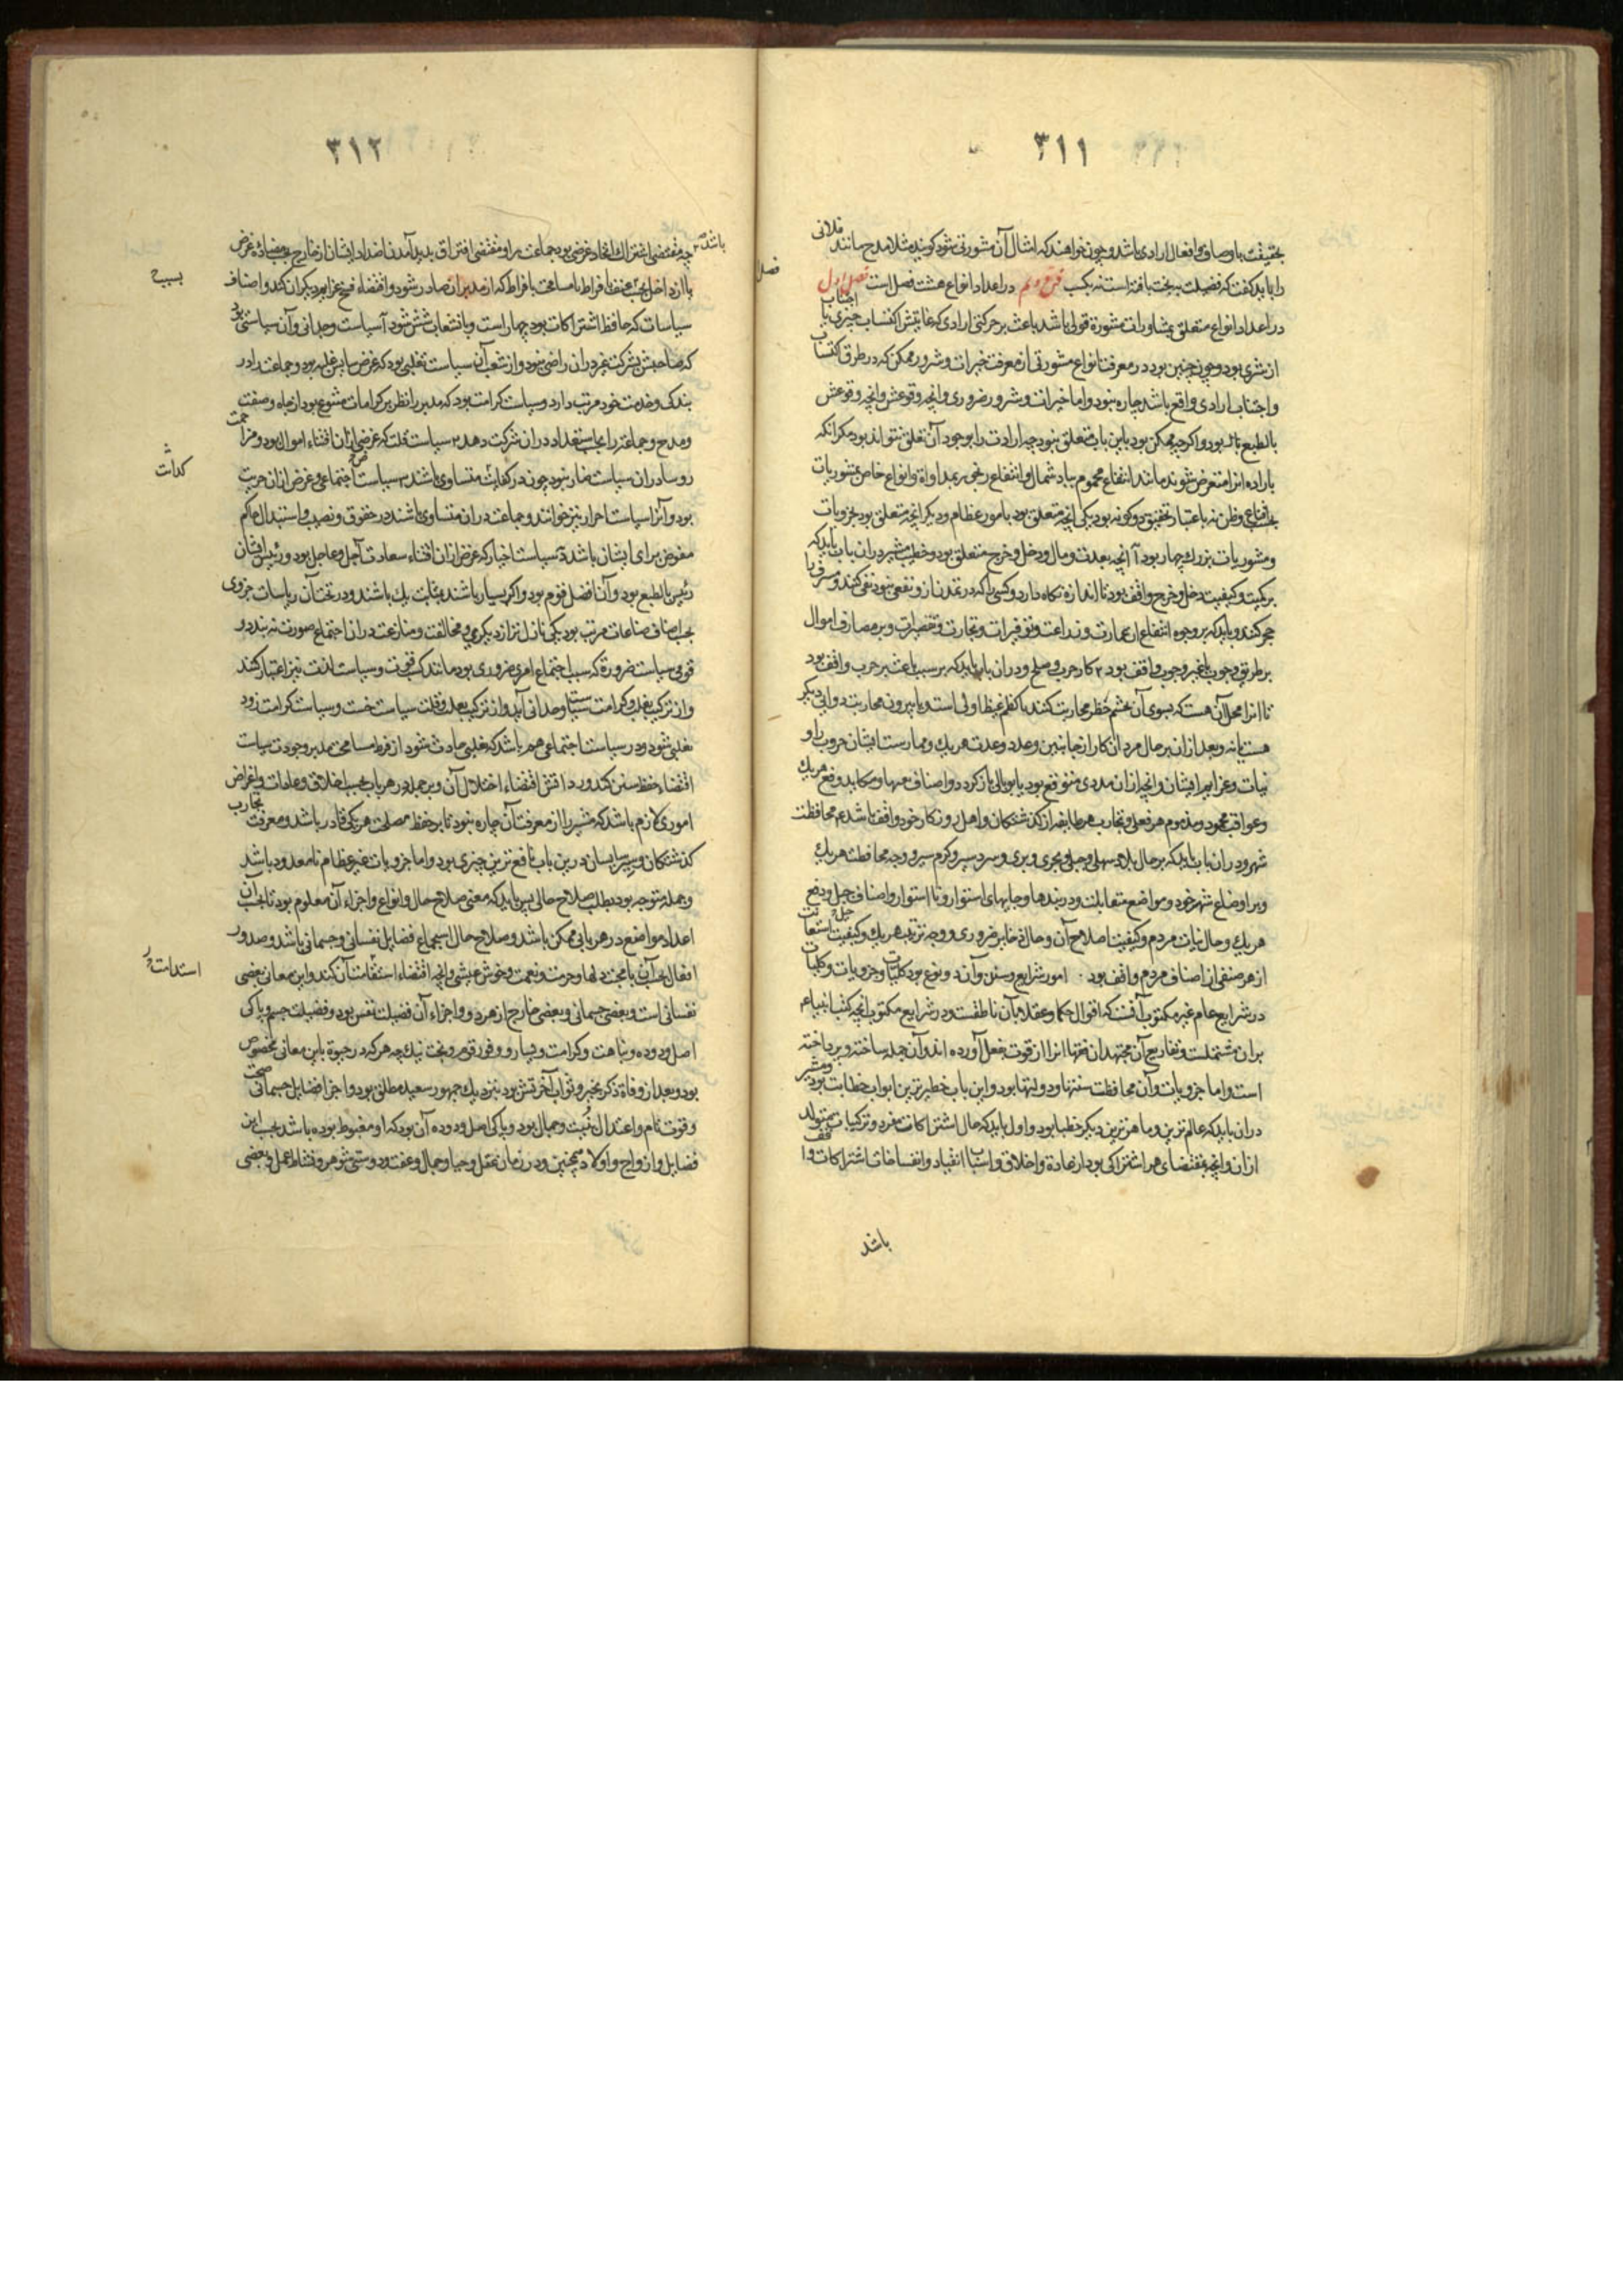 ٣١١
بحقیقت باوصاف وافعال ارادی باشد و چون خواهند که امثال آن مشورتی شود گویند مثلا مدح مانند فلانی
را باید گفت که فضیلت به بخت یافته است نه بکسب فن دوم در اعداد انواع هشت فصل است فصل اول
در اعداد انواع متعلق بمشاورات مشورة قولی باشد باعث بر حرکتی ارادی که غایتش اکتساب چیزی یا اجتناب
از شری بود و چون چنین بود در معرفت انواع مشورتی از معرفت خیرات و شرور ممکن که در طرق اکتساب
و اجتناب ارادی واقع باشد چاره نبود و اما خیرات و شرور ضروری و انچه وقوعش و انچه وقوعش
بالطبع بود و اگرچه ممکن بود باین باب متعلق نبود چه ارادت را بوجود آن تعلق نتواند بود مگر انکه
باراده انرا متعرض شوند مانند انتفاع محموم بباد شمال و انتفاع رنجور بمداواة و انواع خاص مشوریات
بحسب اقناع و ظن نه باعتبار تحقیق دو گونه بود یکی انچه متعلق بود بامور عظام و دیگر انچه متعلق بود بجزویات
و مشوریات بزرگ چهار بود ۱ انچه بعدت و مال و دخل و خرج متعلق بود و خطیب مشیر در ان باب باید که
بر کمیت و کیفیت دخل و خرج واقف بود تا اندازه نگاه دارد و کسی را که در تمدن ازو نفعی نبود نفی کند و مسرف را
حجر کند و باید که بر وجوه انتفاع از عمارت و زراعت و توفیرات و تجارت و تقصیرات و بر مصارف اموال
بر طریق وجوب یا غیر وجوب واقف بود ۲ کار حرب و صلح و در ان باب باید که بر سبب باعث بر حرب واقف بود
تا انرا محل آن هست که بسوی آن تجشم خطر محاربت کنند یا کظم غیظ اولی است و با بیرون محاربت دوای دیگر
هست یا نه و بعد از ان بر حال مردان کار از جانبین و عدد و عدت هر یک و ممارست ایشان حروب را و
نیات و عزایم ایشان و انچه از ان مددی متوقع بود یا وبالی باز گردد و اصناف مهمات و مکاید و دفع هر یک
و عواقب محمود و مذموم هر فعلی و تجارب هر طایفه از گذشتگان و اهل روزگار خود واقف باشد ۳ محافظت
شهر و در ان باب باید که بر حال بلاد سهلی و جبلی و بحری و بری و سردسیر و گرم سیر و وجه محافظت هر یک
و بر اوضاع شهر خود و مواضع متقابلت و دربندها و جایهای استوار و نااستوار و اصناف حیل و دفع
هر یک و حال نیات مردم و کیفیت اصلاح آن و حال ذخایر ضروری و وجه ترتیب هر یک و کیفیت استعانت
از هر صنفی از اصناف مردم واقف بود ۴ امور شرایع و سنن و آن دو نوع بود کلیات و جزویات و کلیات
در شرایع عام غیر مکتوب آنست که اقوال حکما و عقلا بآن ناطقست و در شرایع مکتوب انچه کتب انبیا ع
بران مشتملست و تفاریع آن مجتهدان فقها انرا از قوت بفعل آورده اند و آن جمله ساخته و پرداخته
است و اما جزویات و آن محافظت سنتها و دولتها بود و این باب خطیرترین ابواب خطابت بود و مشیر
در ان باید که عالم ترین و ماهرترین دیگر خطبا بود و اول باید که حال اشتراکات مفرد و ترکیبات متولد
از ان و انچه بمقتضای هر اشتراکی بود از عادة و اخلاق و اسباب انقیاد و انفساخات اشتراکات واقف
باشد
٣١٢
باشد چه مقتضی اشتراک اتحاد غرضی بود جماعت را و مقتضی افتراق پدید آمدن اضداد ایشان از خارج بحسب مضاده غرض
یا از داخل بحسب عنف بافراط یا مسامحت بافراط که از مدبران صادر شود و اقتضاء فسخ عزایم دیگران کند و اصناف
سیاسات که حافظ اشتراکات بود چهار است و بانشعاب شش شود ۱ سیاست وحدانی و آن سیاستی بود
که صاحبش بشرکت غیر در ان راضی نبود و از شعب آن سیاست تغلبی بود که غرض سایس غلبه بود و جماعت را در
بندگی و خدمت خود مرتب دارد و سیاست کرامت بود که مدبر را نظر بر کرامات متنوع بود از جاه و صفت
و مدح و جماعت را بحسب استعداد در ان شرکت دهد ۲ سیاست قلت که غرض از ان اقتناء اموال بود و مزاحمت
روسا در ان سیاست ضار نبود چون در کفایت متساوی باشند ۳ سیاست اجتماعی و غرض از ان حریت
بود و آنرا سیاست احرار نیز خوانند و جماعت در ان متساوی باشند در حقوق و نصب و استبدال حاکم
مفوض برای ایشان باشد ۴ سیاست اخیار که غرض از ان اقتناء سعادت آجل و عاجل بود و رئیس ایشان
رئیس بالطبع بود و آن افضل قوم بود و اگر بسیار باشند بمثابت یک باشند و در تحت آن ریاسات جزوی
بحسب اصناف صناعات مرتب بود یکی نازل تر از دیگری و مخالفت و منازعت در ان اجتماع صورت نه بندد و
قومی سیاست ضرورة که سبب اجتماع امری ضروری بود مانند کسب قوت و سیاست لذت نیز اعتبار کنند
و از ترکیب تغلب و کرامت سیاست وحدانی آید و از ترکیب بعدل و قلت سیاست خست و سیاست کرامت زود
تغلبی شود و در سیاست اجتماعی هم باشد که تغلبی حادث شود از فرط مسامحت مدبر و جودت سیاست
اقتضاء حفظ سنن کند و رداءتش اقتضاء اختلال آن و بر جمله در هر باب بحسب اخلاق و عادات و اغراض
اموری لازم باشد که مشیر را از معرفت آن چاره نبود تا بر حفظ مصلحت هر یکی قادر باشد و معرفت تجارب
گذشتگان و سیر سایسان درین باب نافع ترین چیزی بود و اما جزویات غیر عظام نامعدود باشد
و جمله متوجه بود بطلب صلاح حالی پس باید که معنی صلاح حال و انواع و اجزاء آن معلوم بود تا بحسب آن
اعداد مواضع در هر بابی ممکن باشد و صلاح حال استجماع فضایل نفسانی و جسمانی باشد و صدور
افعال بحسب آن با محبت دلها و حرمت و نعمت و خوش عیشی و انچه اقتضاء استقامت آن کند و این معانی بعضی
نفسانی است و بعضی جسمانی و بعضی خارج از هر دو و اجزاء آن فضیلت نفس بود و فضیلت جسم و پاکی
اصل و دوده و نباهت و کرامت و یسار و وفور قوم و بخت نیک چه هر که در حیوة باین معانی مخصوص
بود و بعد از وفاة ذکر بخیر و ثواب آخرتش بود بنزدیک جمهور سعید مطلق بود و اجزا فضایل جسمانی صحت
و قوت تام و اعتدال بنیت و جمال بود و پاکی اصل و دوده آن بود که او مغبوط بوده باشد بحسب این
فضایل و ازواج و اولاد همچنین و در زمان بعقل و حیا و جمال و عفت و دوستی شوهر و نشاط عمل و بعضی
فصل
بسبب